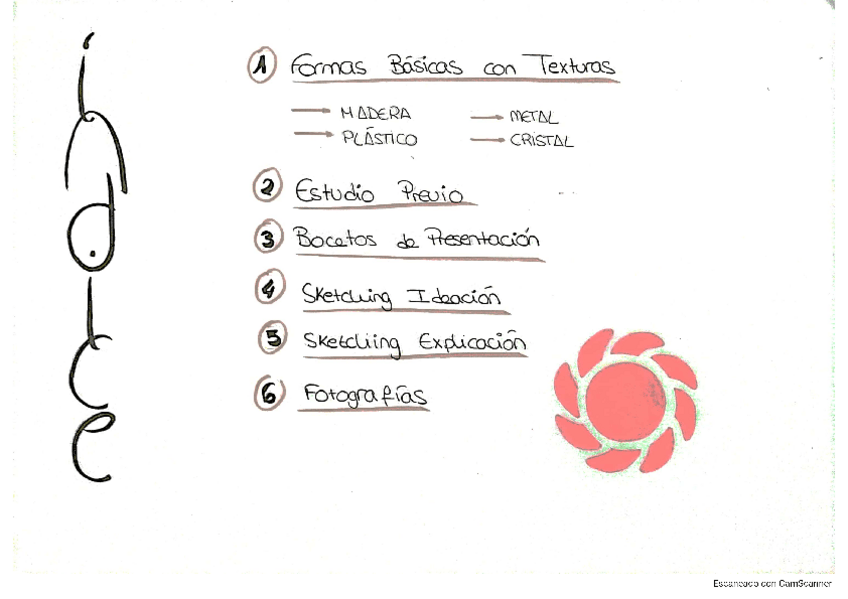 índice
1 Formas Básicas con Texturas
→ MADERA → METAL
→ PLÁSTICO → CRISTAL
2 Estudio Previo
3 Bocetos de Presentación
4 Sketching Ideación
5 Sketching Explicación
6 Fotografías
Escaneado con CamScanner